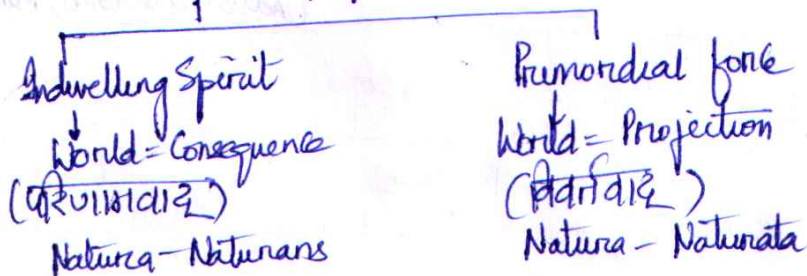 Indwelling Spirit
World = Consequence
(परिणामवाद)
Natura - Naturans
Primordial force
World = Projection
(विवर्तवाद)
Natura - Naturata